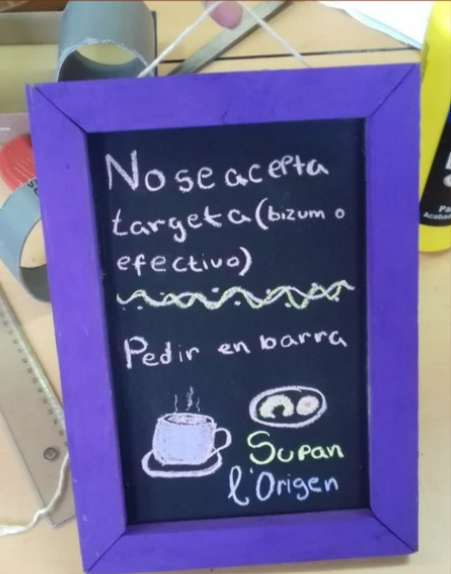 No se acepta
targeta (bizum o
efectivo)
Pedir en barra
Supan
l'Origen